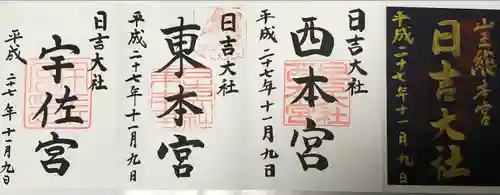 日吉大社
西本宮
平成二十七年十一月九日
日吉大社
東本宮
平成二十七年十一月九日
日吉大社
宇佐宮
平成二十七年十一月九日
日吉大社
平成二十七年十一月九日